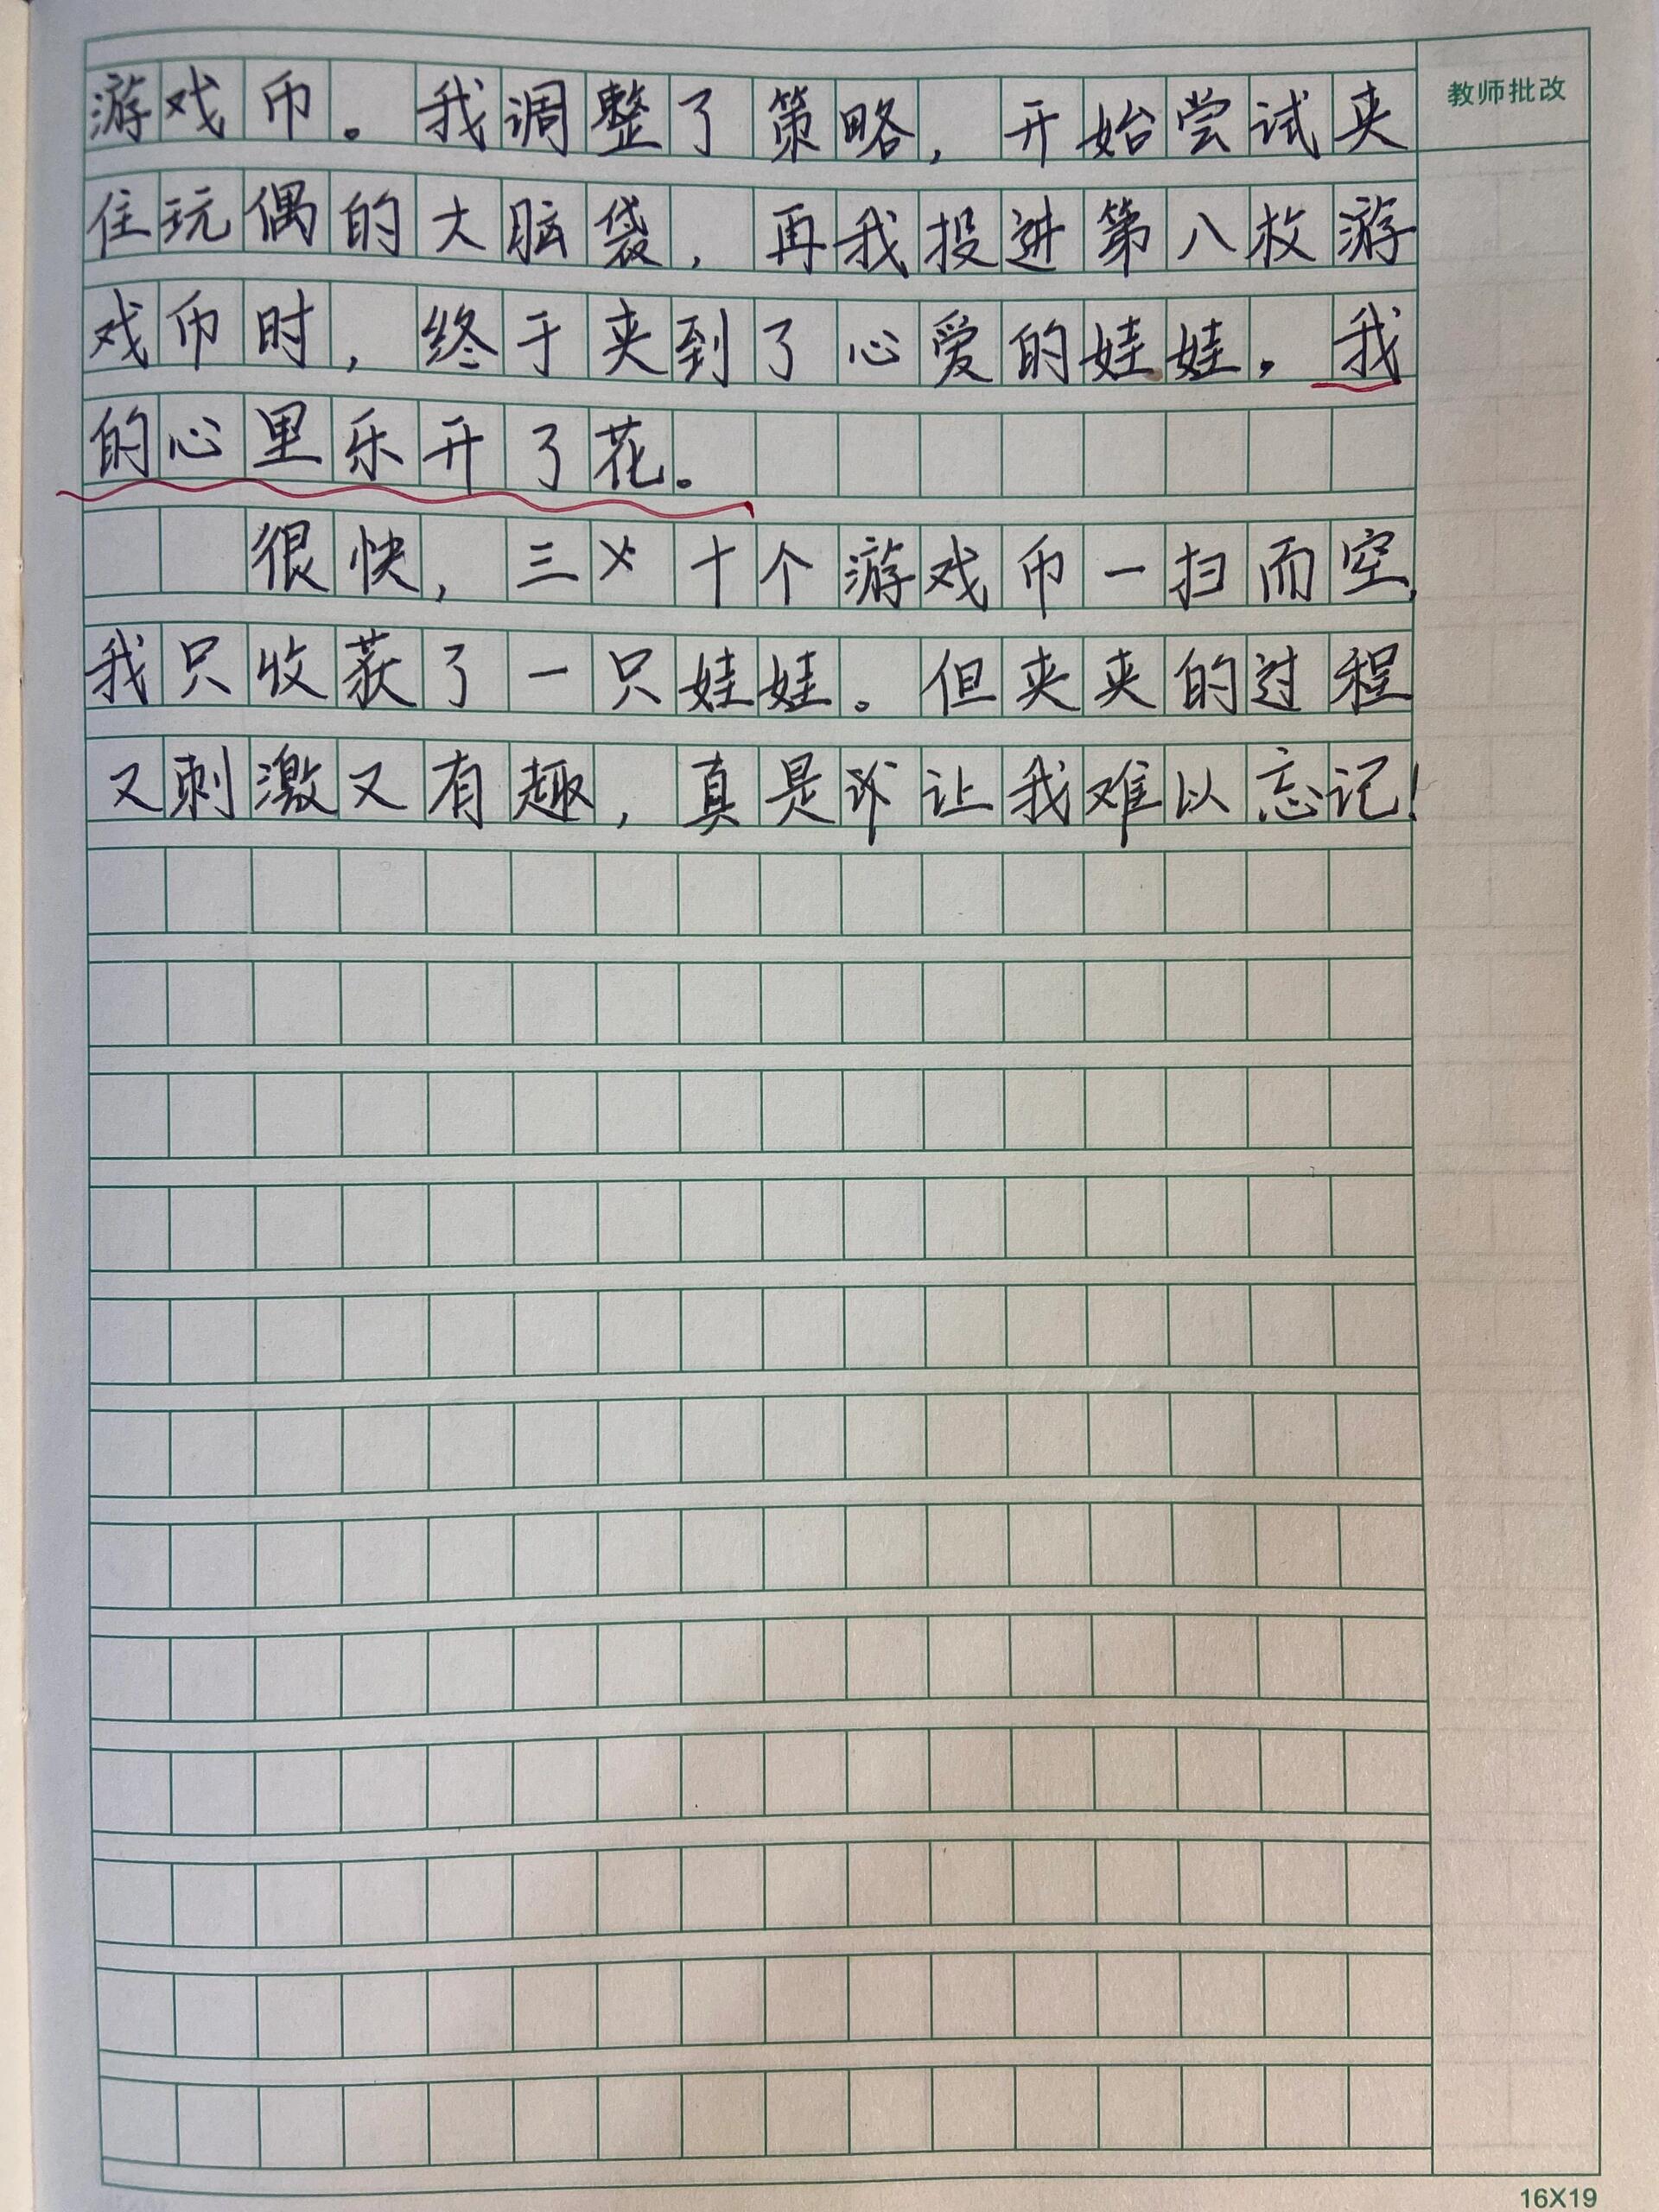 教师批改
游戏币。我调整了策略，开始尝试夹
住玩偶的大脑袋，再我投进第八枚游
戏币时，终于夹到了心爱的娃娃。我
的心里乐开了花。
很快，三十个游戏币一扫而空，
我只收获了一只娃娃。但夹夹的过程
又刺激又有趣，真是让我难以忘记！
16X19